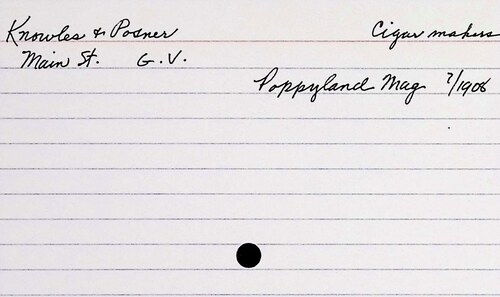 Knowles & Posner Cigar makers
Main St. G.V.
Poppyland Mag ?/1906